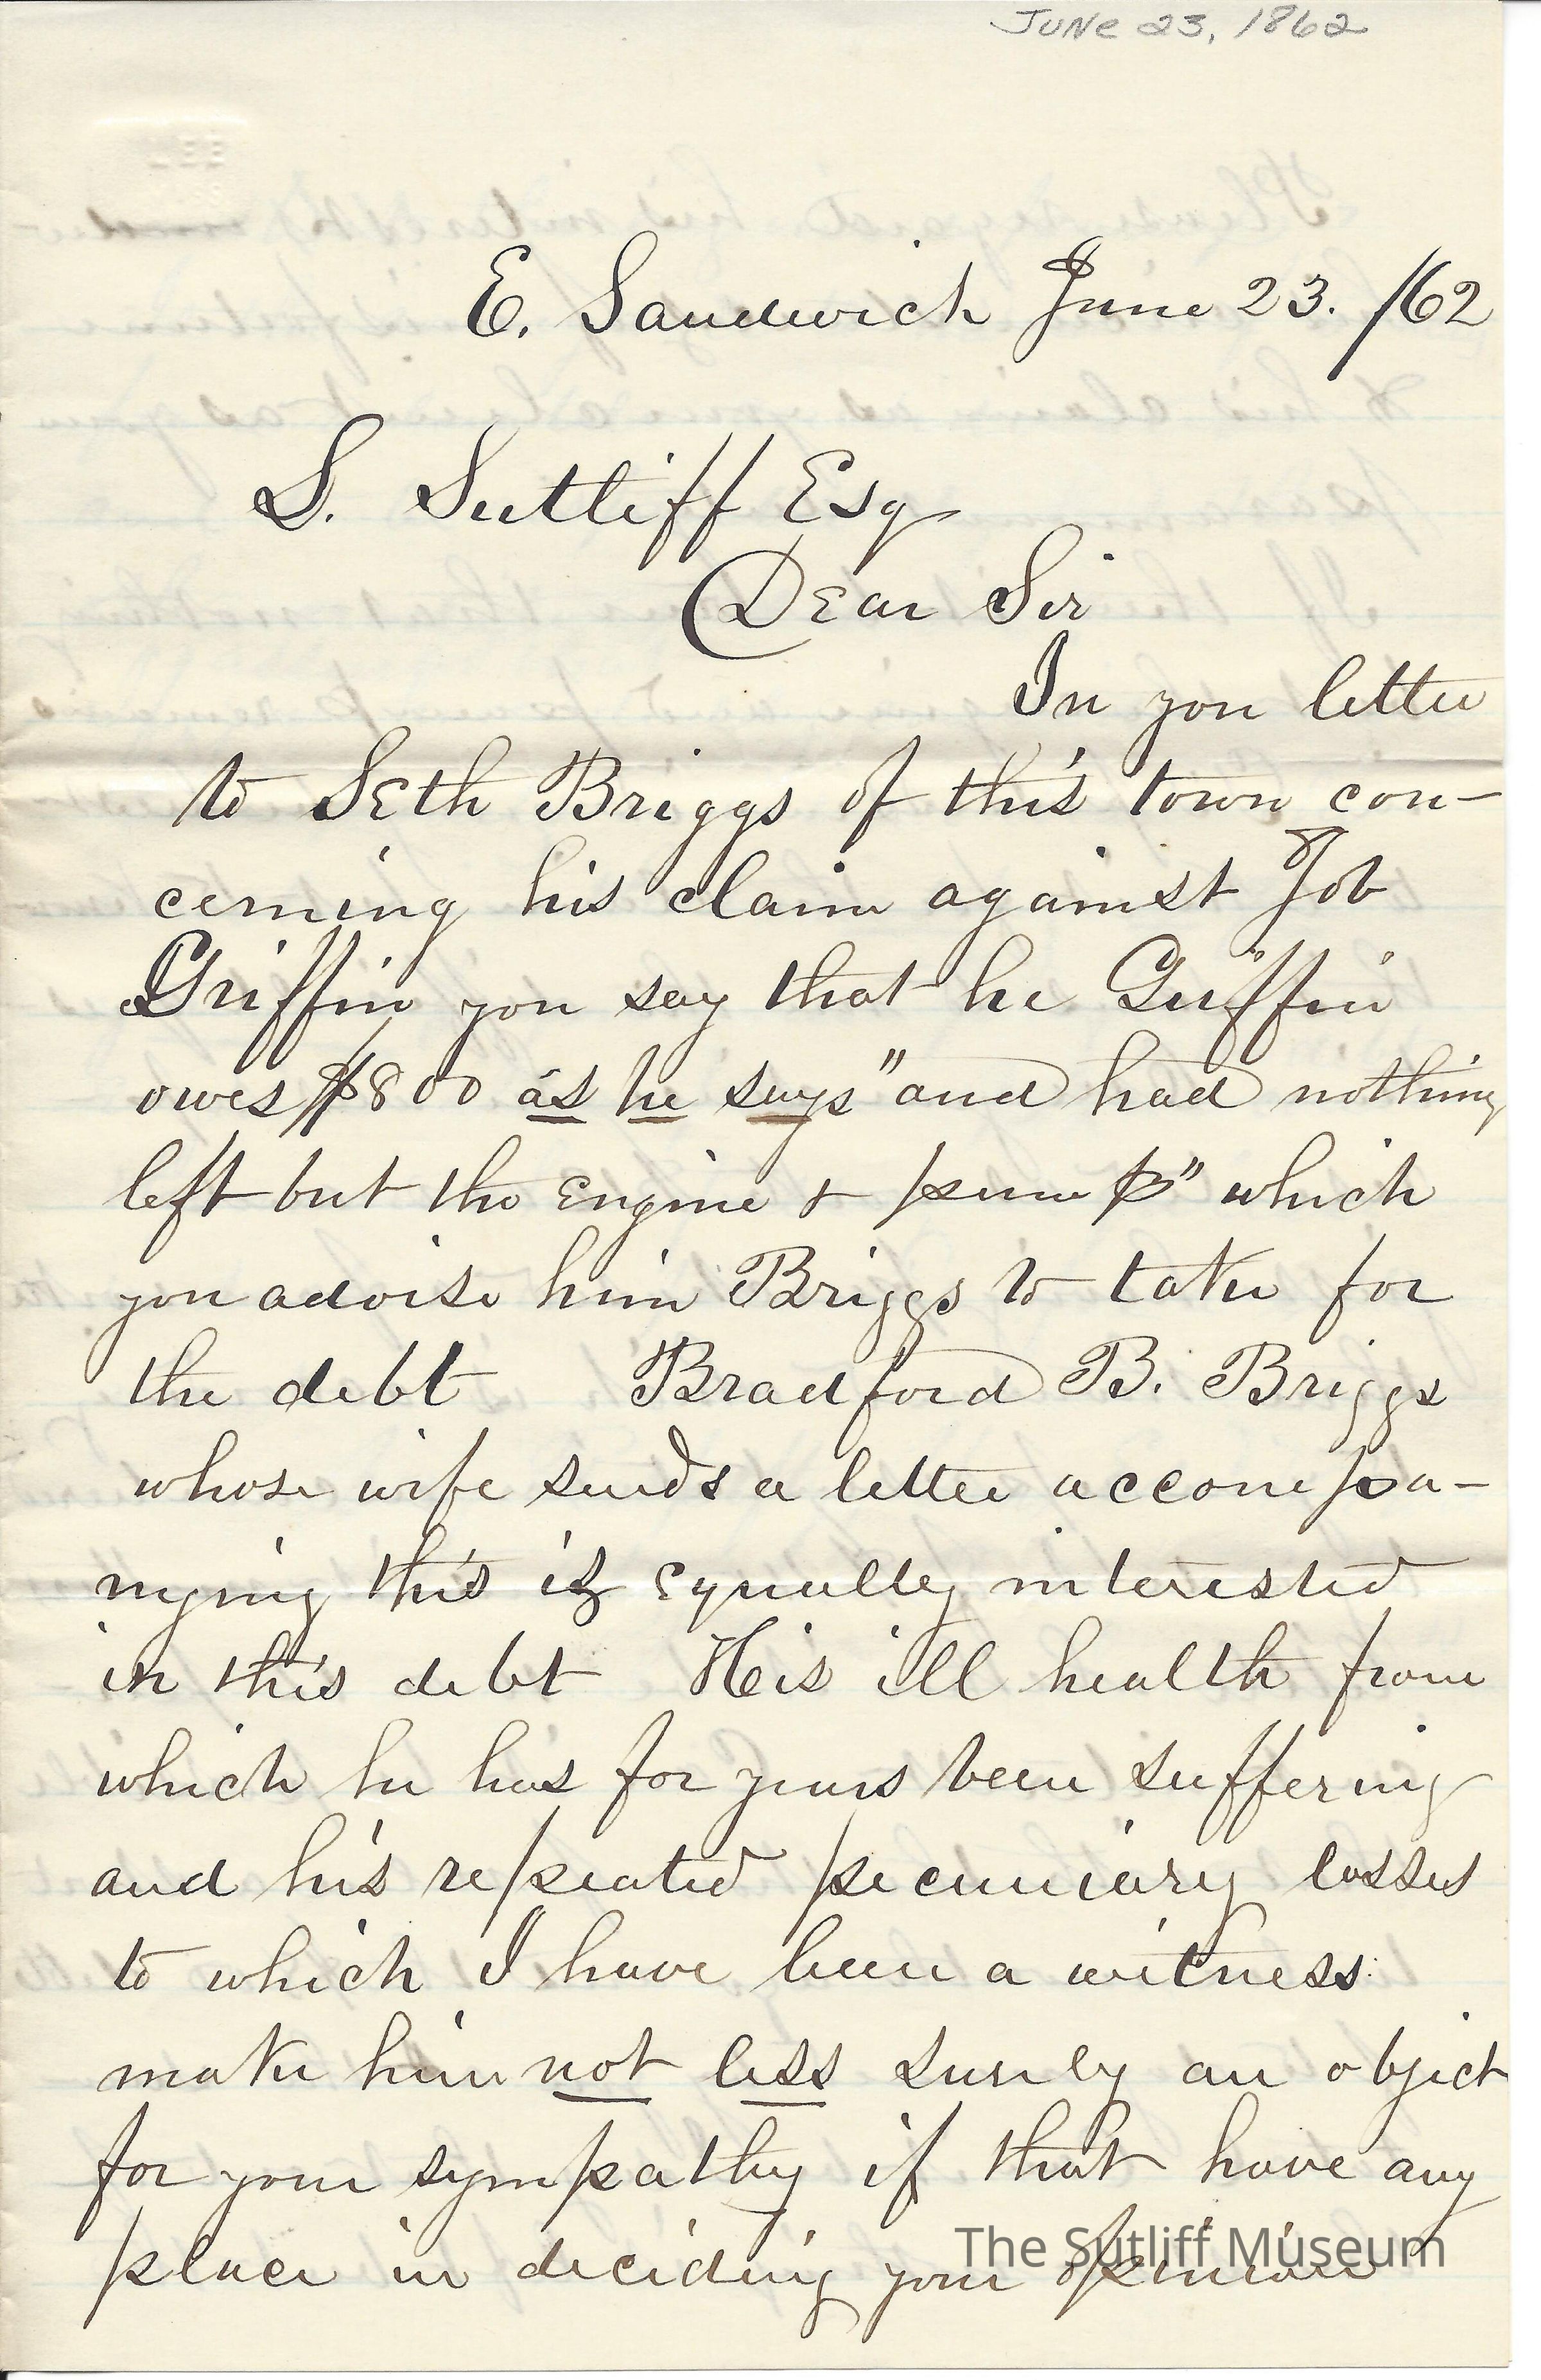 JUNE 23, 1862
E. Sandwich June 23. /62
S. Sutliff Esq
Dear Sir
In you letter
to Seth Briggs of this town con-
cerning his claim against Job
Griffin you say that he Griffin
owes $800 as he says "and had nothing
left but the Engine & pump" which
you advise him Briggs to take for
the debt Bradford B. Briggs
whose wife sends a letter accompa-
nying this is equally interested
in this debt His ill health from
which he has for years been suffering
and his repeated pecuniary losses
to which I have been a witness
make him not less surely an object
for your sympathy if that have any
place in deciding your opinion
The Sutliff Museum